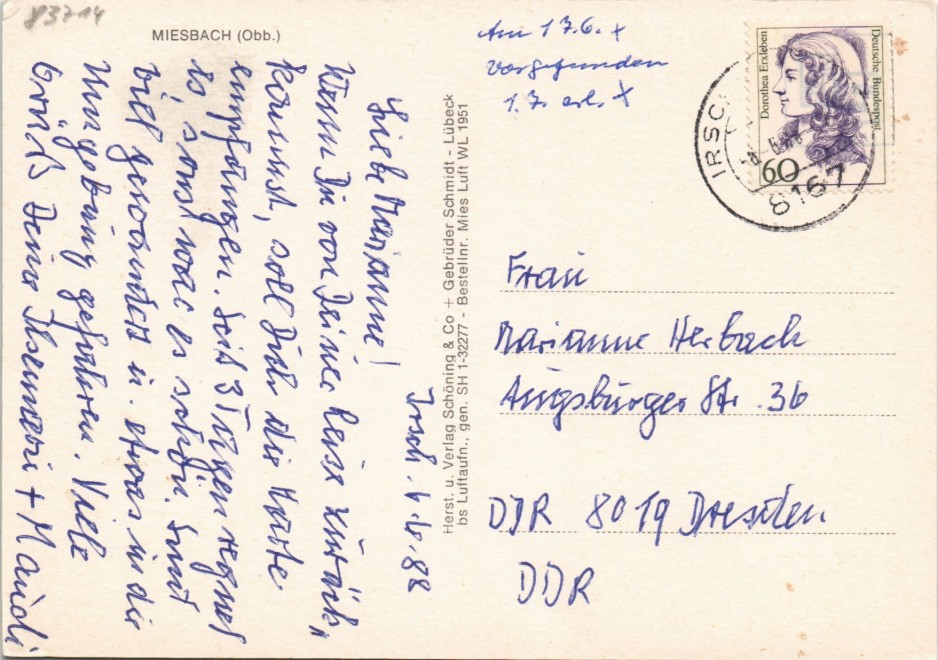 83714
MIESBACH (Obb.)
Irsch. 4.6.88
Liebe Marianne!
Wenn Du von Deiner Reise zurück-
kommst, soll Dich die Karte
empfangen. Seit 3 Tagen regnet
es, sonst war es schön. Sind
viel gewandert u. etwas in die
Umgebung gefahren. Viele
Grüße Deine Ilsemarie +
Herst. u. Verlag Schöning & Co + Gebrüder Schmidt - Lübeck
bs Luftaufn., gen. SH 1-32277 - Bestellnr. Mies Luft WL 1951
Am 17.6. +
vorgefunden
1.7. erl. +
Dorothea Erxleben
Deutsche Bundespost
60
IRSC
8167
Frau
Marianne Herbach
Augsburger Str. 36
DDR 8019 Dresden
DDR